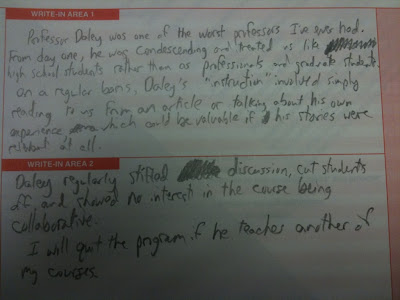 WRITE-IN AREA 1
Professor Daley was one of the worst professors I've ever had.
From day one, he was condescending and treated us like
high school students rather than as professionals and graduate students.
On a regular basis, Daley's "instruction" involved simply
reading to us from an article or talking about his own
experience which could be valuable if his stories were
relevant at all.
WRITE-IN AREA 2
Daley regularly stifled discussion, cut students
off, and showed no interest in the course being
collaborative.
I will quit the program if he teaches another of
my courses.